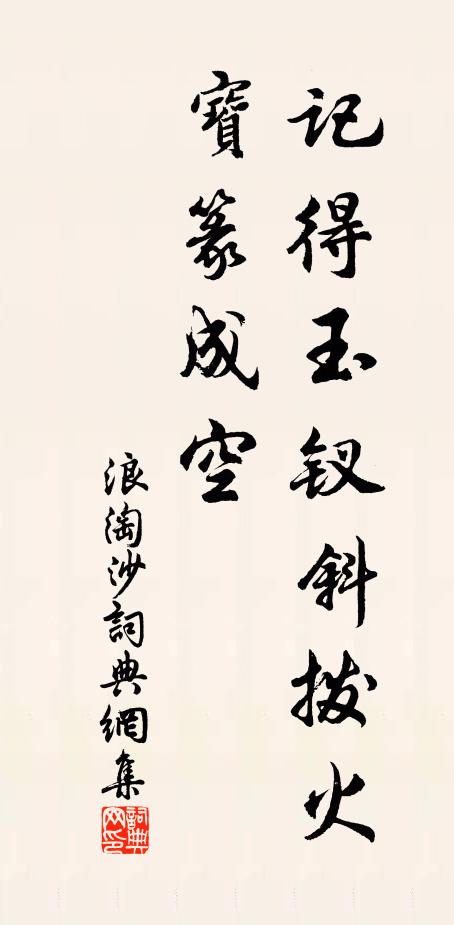 记得玉钗斜拨火
寶篆成空
浪淘沙詞典網集
詞典网印